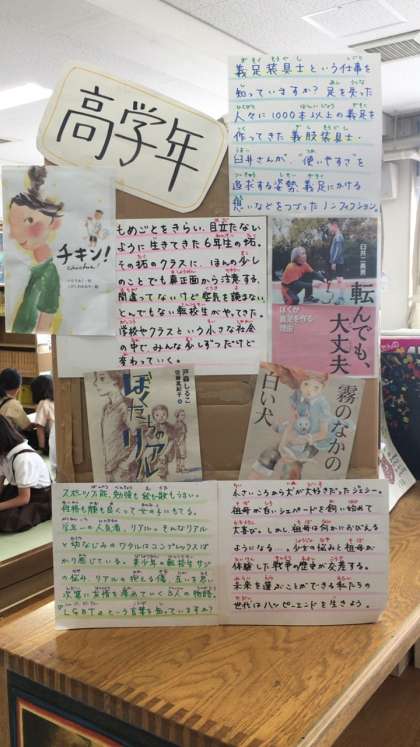 高学年
義足装具士という仕事を
知っていますか? 足を失った
人々に1000本以上の義足を
作ってきた義肢装具士・
臼井さんが、"使いやすさ"を
追求する姿勢、義足にかける
思いなどをつづったノンフィクション。
チキン!
もめごとをきらい、目立たない
ように生きてきた6年生の拓。
その拓のクラスに、ほんの少し
のことでも真正面から注意する、
間違ってないけど空気を読まない、
とんでもない転校生がやってきた。
学校やクラスという小さな社会
の中で、みんな少しずつだけど
変わっていく。
臼井二美男
転んでも、
大丈夫
ぼくが
義足を作る
理由
戸森しるこ
佐藤真紀子
ぼくたちの
リアル
霧のなかの
白い犬
スポーツ万能、勉強も絵も歌もうまい。
性格も顔も良くって女の子にもてる。
学年一の人気者、リアル。そんなリアル
と幼なじみのワタルはコンプレックスば
かり感じている。美少年の転校生サジ
の悩み、リアルの抱える傷、互いを思い
次第に友情を深めていく3人の物語。
"LGBT"という言葉を知っていますか?
小さいころから犬が大好きだったジェシー。
祖母が白いシェパードを飼い始めて
大喜び。しかし祖母は何かにおびえる
ようになる…。少女の悩みと祖母が
体験した戦争の歴史が交差する。
未来を選ぶことができる私たちの
世代はハッピーエンドを生きよう。